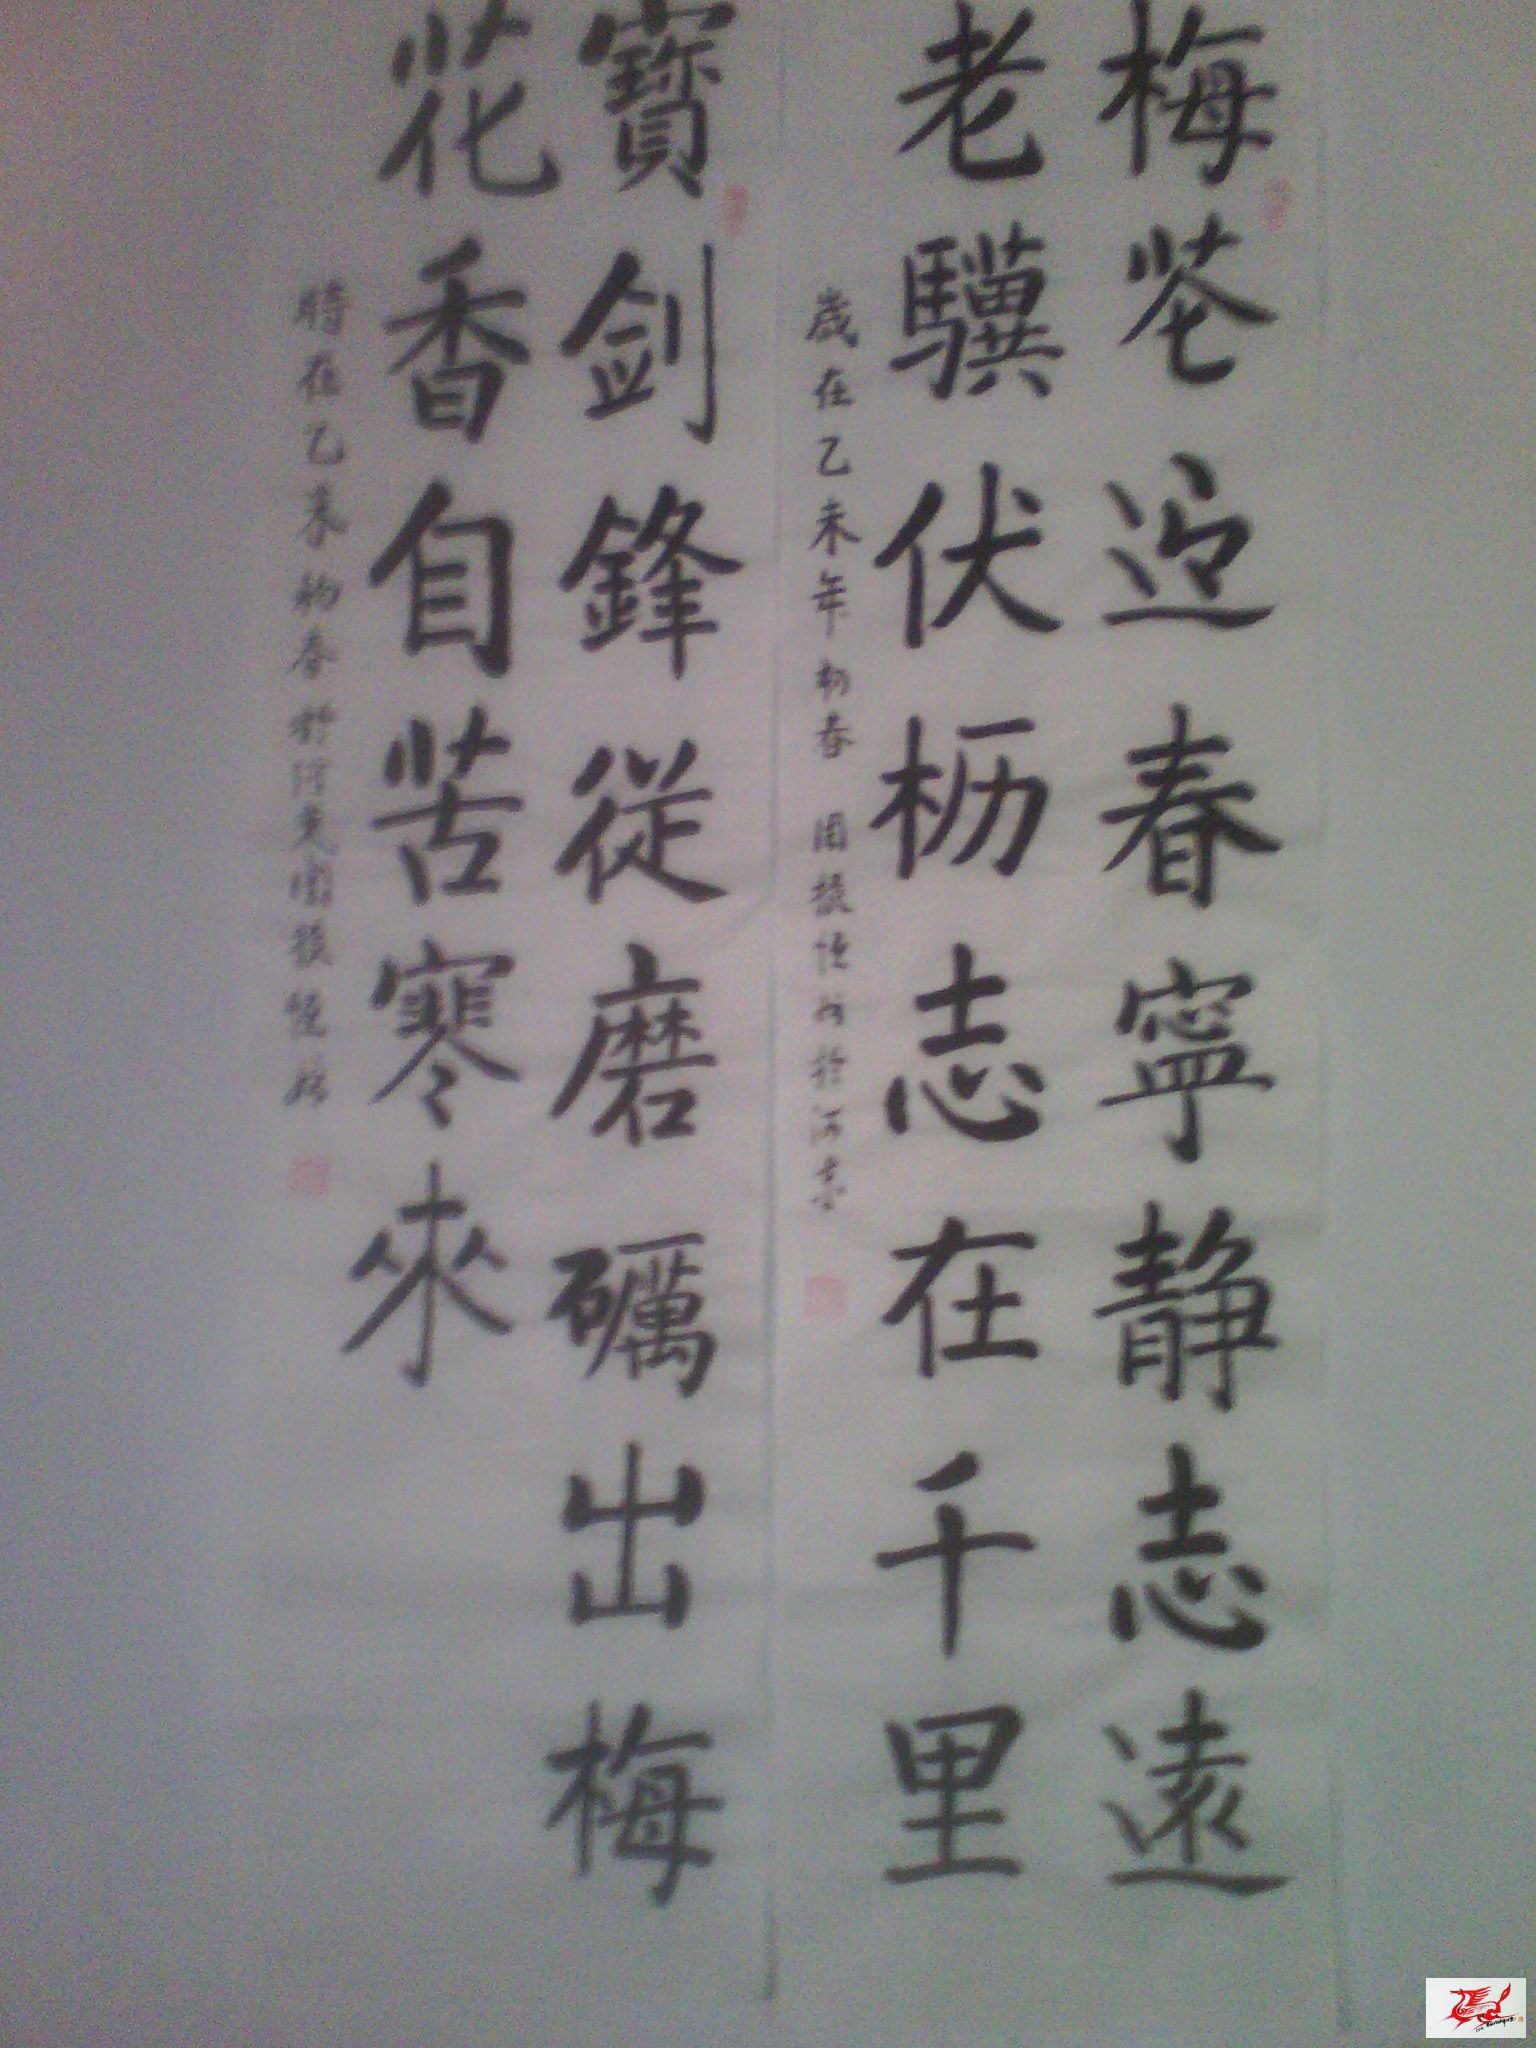 梅花迎春寧静志遠
老驥伏枥志在千里
歲在乙未年初春
寶剑鋒從磨礪出梅
花香自苦寒來
時在乙未初春於河